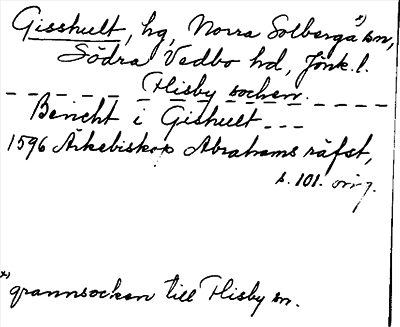 Gisshult, hg, Norra Solberga x) sn,
Södra Vedbo hd, Jönk.l.
Flisby socken.
Bencht i Gishult ---
1596 Ärkebiskop Abrahams räfst,
s. 101. orig.
x) grannsocken till Flisby sn.